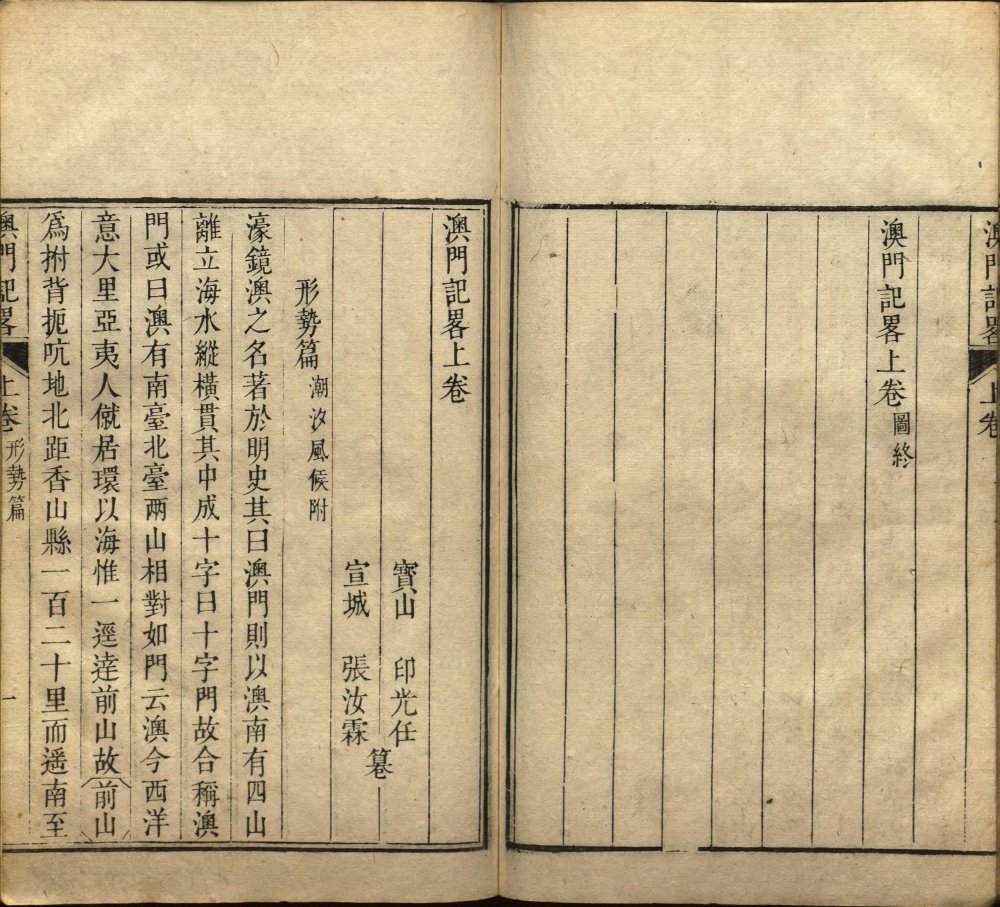 澳門記畧
上卷
澳門記畧上卷 圖終
澳門記畧上卷
寶山 印光任
宣城 張汝霖
纂
形勢篇 潮汐風候附
濠鏡澳之名著於明史其曰澳門則以澳南有四山
離立海水縱橫貫其中成十字曰十字門故合稱澳
門或曰澳有南臺北臺兩山相對如門云澳今西洋
意大里亞夷人僦居環以海惟一逕達前山故前山
爲拊背扼吭地北距香山縣一百二十里而遥南至
澳門記畧
上卷 形勢篇 一